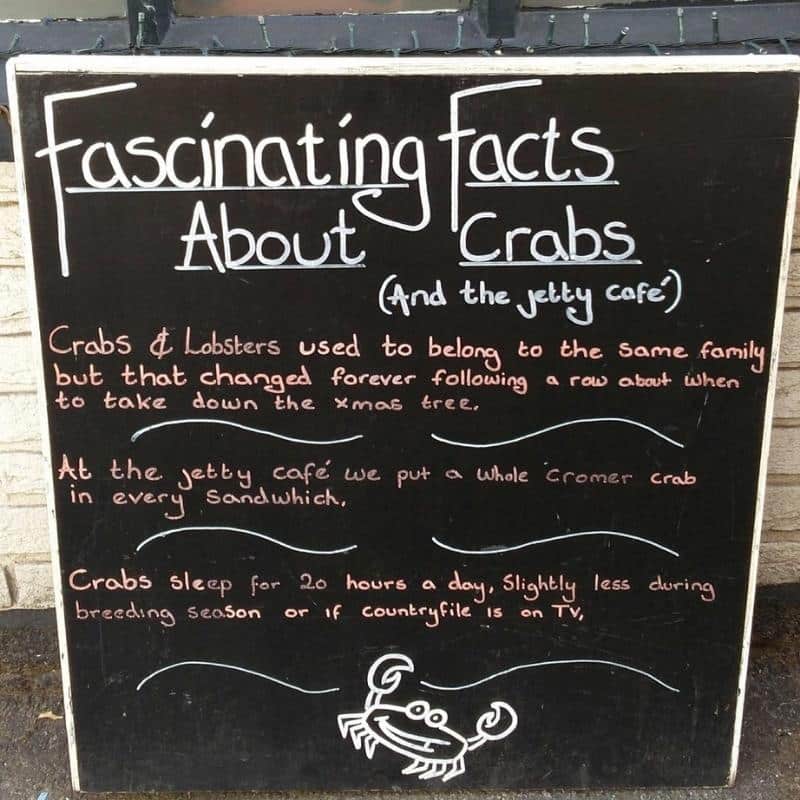 Fascinating Facts
About Crabs
(And the jetty café)
Crabs & Lobsters used to belong to the same family
but that changed forever following a row about when
to take down the xmas tree.
At the jetty café we put a whole cromer crab
in every sandwhich.
Crabs sleep for 20 hours a day, slightly less during
breeding season or if countryfile is on TV.